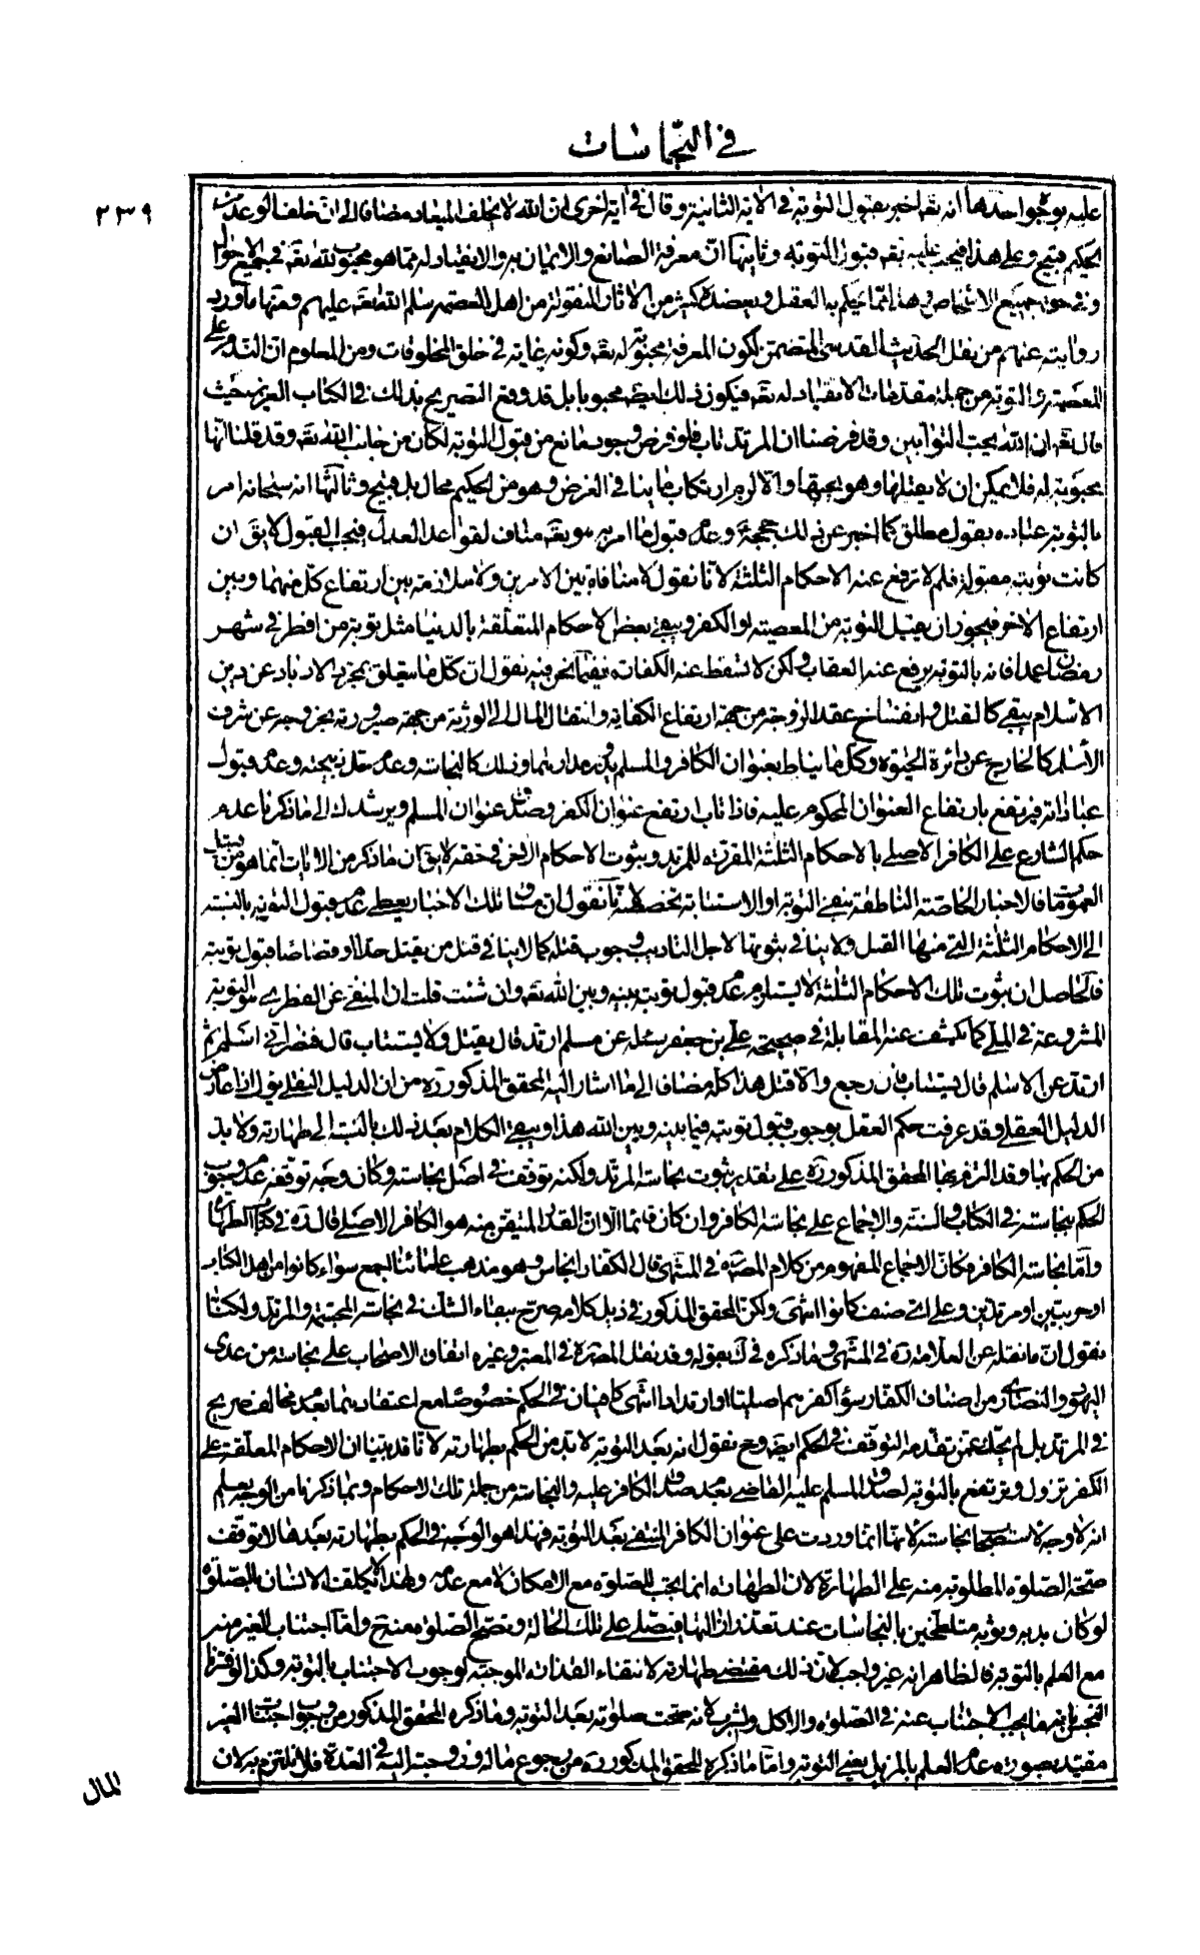 في النجاسات
٢٣٩
عليه بوجوه احدها انه تعه اخبر بقبول التوبة في الاية الثانية وقال في اية اخرى ان الله لا يخلف الميعاد مضافا الى ان خلف الوعد من
الحكيم قبيح وعلى هذا فيجب عليه تعه قبول التوبة وثانيها ان معرفة الصانع والايمان به والانقياد له مما هو محبوب لله تعه في جميع الاحوال
وفي حق جميع الاشخاص وهذا مما يحكم به العقل ويعضده كثير من الاثار المنقولة من اهل العصمة سلم الله تعه عليهم ومنها ما ورد
روايته عنهم من نقل الحديث القدسي المتضمن لكون المعرفة محبوبة له تعه وكونه غاية في خلق المخلوقات ومن المعلوم ان الندم على
المعصية والتوبة من جملة مقدمات الانقياد له تعه فيكون ذلك ايضه محبوبا بل قد وقع التصريح بذلك في الكتاب العزيز حيث
قال تعه ان الله يحب التوابين وقد فرضنا ان المرتد تاب فلو فرض وجود مانع من قبول التوبة لكان من جانب الله تعه وقد قلنا انها
محبوبة له فلا يمكن ان لا يقبلها وهو يحبها والا لزم ارتكاب ما ينافي الغرض وهو من الحكيم محال بل قبيح وثالثها انه سبحانه امر
بالتوبة عباده بقول مطلق كما اخبر عن ذلك حججه وعدم قبول ما امر به هو تعه مناف لقواعد العدل فيجب القبول لا يق ان
كانت توبته مقبولة فلم لا ترفع عنه الاحكام الثلثة لانا نقول لا منافاة بين الامرين ولا ملازمة بين ارتفاع كل منهما وبين
ارتفاع الاخر فيجوز ان يقبل التوبة من المعصية او الكفر ويبقى بعض الاحكام المتعلقة بالدنيا مثل توبة من افطر في شهر
رمضان عمدا فانه بالتوبة يرفع عنه العقاب ولكن لا تسقط عنه الكفارات ففيما نحن فيه نقول ان كل ما يتعلق بمجرد الارتداد عن دين
الاسلام يبقى كالقتل وانفساخ عقد الزوجة من جهة ارتفاع الكفاية وانتقال المال الى الورثة من جهة صيرورته بخروجه عن شرف
الاسلم كالخارج عن دائرة الحيوة وكل ما يناط بعنوان الكافر والمسلم يدور مدارهما وذلك كالنجاسة وعدم حل ذبيحته وعدم قبول
عباداته فيرتفع بارتفاع العنوان المحكوم عليه فاذا تاب ارتفع عنوان الكفر وصدق عنوان المسلم ويرشدك الى ما ذكرنا عدم
حكم الشارع على الكافر الاصلي بالاحكام الثلثة المقررة للمرتد وبثبوت الاحكام الاخر في حقه لا يق ان ما ذكر من الايات انما هو من باب
العموم فالاخبار الخاصة الناطقة بنفي التوبة او الاستتابة تخصصه لانا نقول ان مساق تلك الاخبار يعطي عدم قبول التوبة بالنسبة
الى الاحكام الثلثة التي منها القتل ولا ينافي ثبوتها لاجل التاديب وجوب قتله كما لا ينافي قتل من يقتل حدا او قصاصا قبول توبته
فالحاصل ان ثبوت تلك الاحكام الثلثة لا يستلزم عدم قبول توبته بينه وبين الله تعه وان شئت قلت ان المنفي عن الفطري هو التوبة
المشروعة في الملي كما يكشف عنه المقابلة في صحيحة علي بن جعفر سئله عن مسلم ارتد قال يقتل ولا يستتاب قال فنصراني اسلم ثم
ارتد عن الاسلم قال يستتاب فان رجع والا قتل هذا كله مضافا الى ما اشار اليه المحقق المذكور ره من ان الدليل النقلي يؤل اذا عارض
الدليل العقلي وقد عرفت حكم العقل بوجوب قبول توبته فيما بينه وبين الله هذا ويبقى الكلام بعد ذلك بالنسبة الى طهارته ولا بد
من الحكم بها وقد التزم بها المحقق المذكور ره على تقدير ثبوت نجاسة المرتد ولكنه توقف في اصل نجاسته وكان وجه توقفه عدم وجود
الحكم بنجاسته في الكتاب والسنة والاجماع على نجاسة الكافر وان كان قائما الا ان القدر المتيقن منه هو الكافر الاصلي قال ره في كتاب الطهارة
واما نجاسة الكافر فكان الاجماع المفهوم من كلام المصنف في المنتهى قال الكفار انجاس وهو مذهب علمائنا اجمع سواء كانوا من اهل الكتاب
او حربيين او مرتدين وعلى اي صنف كانوا انتهى ولكن المحقق المذكور في ذيل كلامه صرح ببقاء الشك في نجاسة المجسمة والمرتد ولكنا
نقول ان ما نقله عن العلامة ره في المنتهى وما ذكره في ك بقوله وقد نقل المص ره في المعتبر وغيره اتفاق الاصحاب على نجاسة من عدى
اليهود والنصارى من اصناف الكفار سواء كفرهم اصليا او ارتدادا انتهى كافيان في الحكم خصوصا مع اعتضادهما بعدم مخالف صريح
في المرتد بل لم يحك عمن تقدمه التوقف في الحكم ايضه وح نقول انه بعد التوبة لا بد من الحكم بطهارته لانا قد بينا ان الاحكام المعلقة على
الكفر تزول وترتفع بالتوبة لصدق المسلم عليه القاضي بعدم صدق الكافر عليه والنجاسة من جملة تلك الاحكام وبما ذكرنا من الوجه يعلم
انه لا وجه لاستصحاب نجاسته لانها انما وردت على عنوان الكافر المنتفي بعد التوبة فهذا هو الوجه في الحكم بطهارته بعدها لا توقف
صحة الصلوة المطلوبة منه على الطهارة لان الطهارة انما يجب للصلوة مع الامكان لا مع عدمه ولهذا لا يكلف الانسان بالصلوة
لو كان بدنه وثوبه متلطخين بالنجاسات عند تعذر ازالتها فيصلي على تلك الحالة وتصح الصلوة منه ح واما اجتناب الغير منه
مع العلم بالتوبة فالظاهر انه غير واجب لان ذلك مقتضى طهارته لانتفاء القذارة الموجبة لوجوب الاجتناب بالتوبة وكذا لو فرض
النجس بانه ما يجب الاجتناب عنه في الصلوة والاكل والشرب لانه صحت صلوته بعد التوبة وما ذكره المحقق المذكور من وجوب اجتناب الغير
مقيد بصورة عدم العلم بالمزيل يعني التوبة واما ما ذكره المحقق المذكور ره من رجوع ماله وزوجته اليه في العدة فلا نلتزم به لان
المال